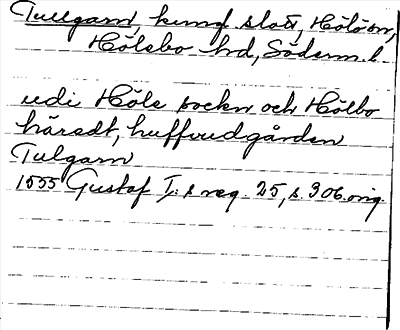 Tullgarn, kungl. slott, Hölö sn,
Hölebo hd, Söderm. l.
udi Höle sockn och Hölbo
häredt, huffvudgården
Tulgarn
1555 Gustaf I:s reg. 25, s. 306. orig.